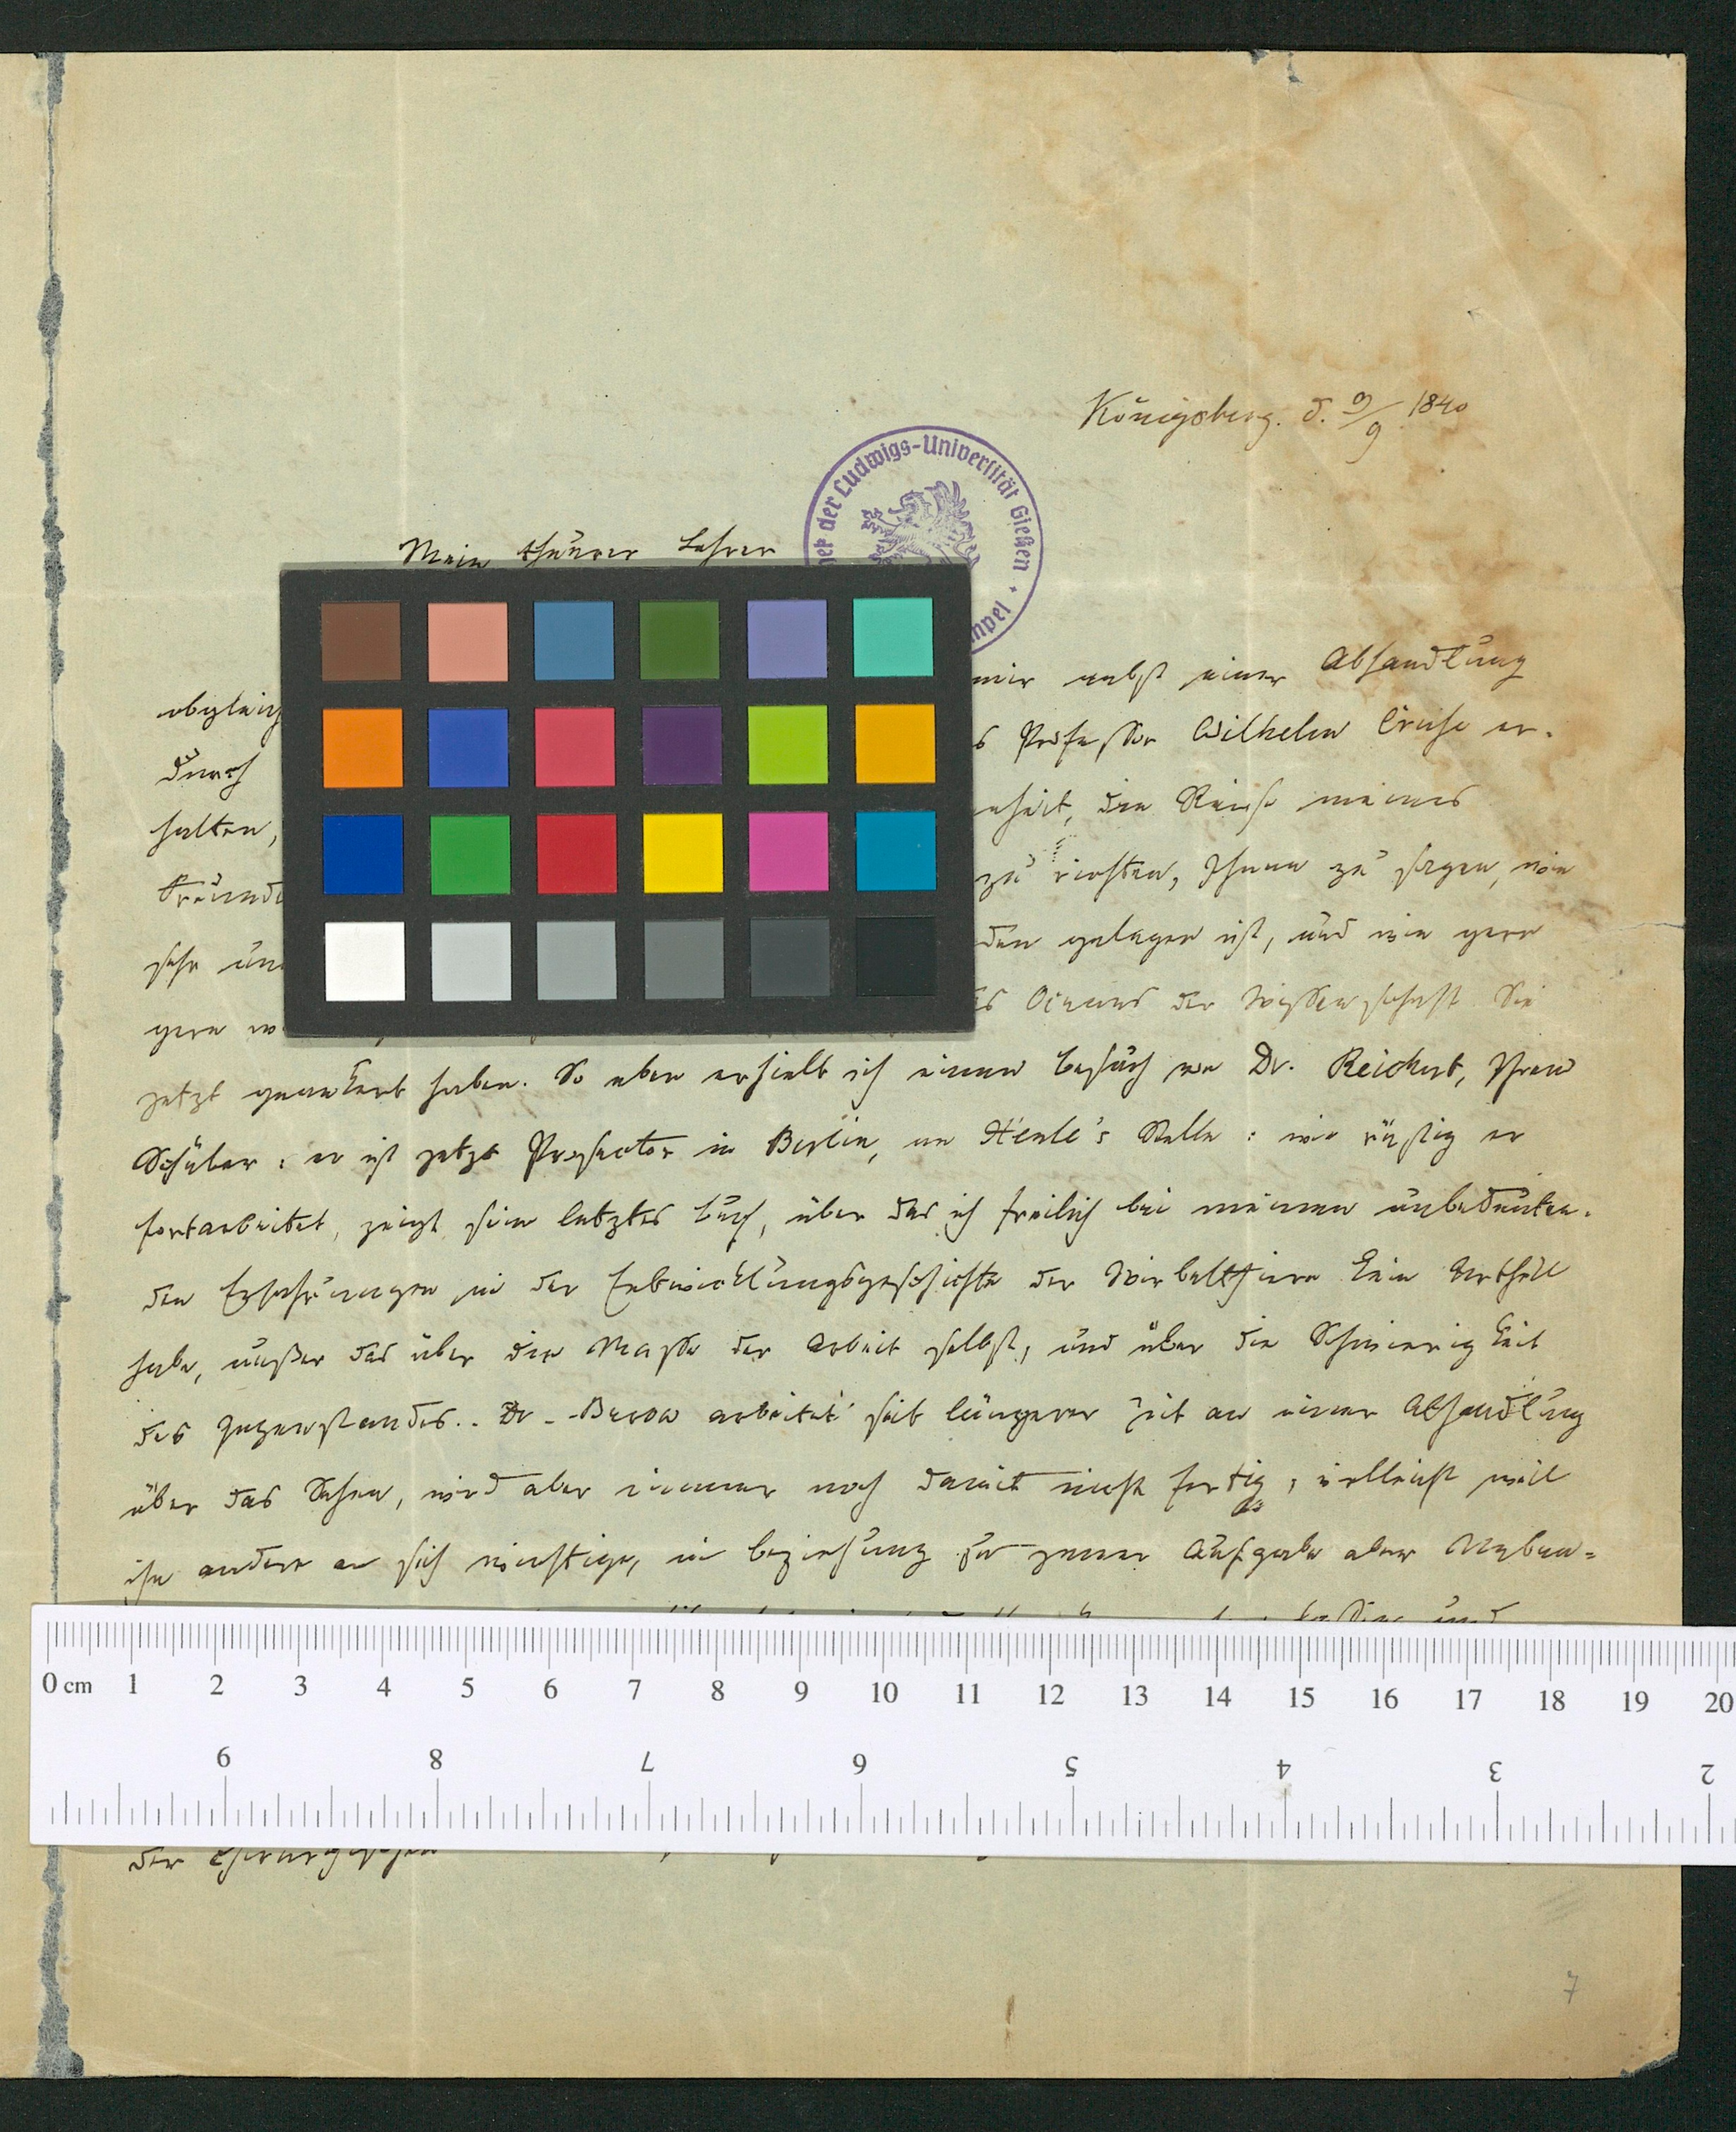 Königsberg. d. 9/9 1840
der Ludwigs-Universität Gießen
Mein theurer Lehrer
mir nebst einer Abhandlung
durch Professor Wilhelm Cruse er-
halten, die Reise meines
zu richten, Ihnen zu sagen, wie
sehr gelegen ist, und wie gern
gern Oceans der Wissenschaft Sie
jetzt geankert haben. So eben erhielt ich einen Besuch von Dr. Reichert, Ihrem
Schüler: er ist jetzt Prosector in Berlin, an Henle's Stelle: wie rüstig er
fortarbeitet, zeigt sein letztes Buch, über das ich freilich bei meinen unbedeuten-
den Erfahrungen in der Entwicklungsgeschichte der Wirbelthiere kein Urtheil
habe, außer das über die Masse der Arbeit selbst, und über die Schwierigkeit
des Gegenstandes. Dr. Burow arbeitet seit längerer Zeit an einer Abhandlung
über das Sehen, wird aber immer noch damit nicht fertig, vielleicht weil
ihn andere an sich wichtige, in Beziehung zu jener Aufgabe aber Neben-
0 cm 1 2 3 4 5 6 7 8 9 10 11 12 13 14 15 16 17 18 19 20
9 8 7 6 5 4 3 2
der
7